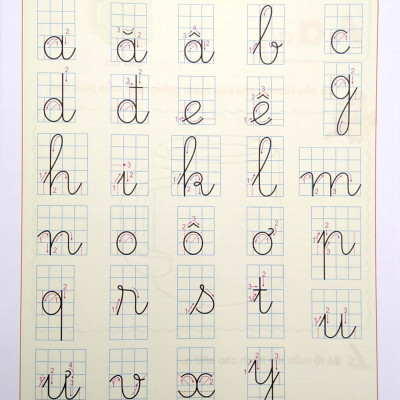 a ă â b c
d đ e ê g
h i k l m
n o ô ơ p
q r s t u
ư v x y